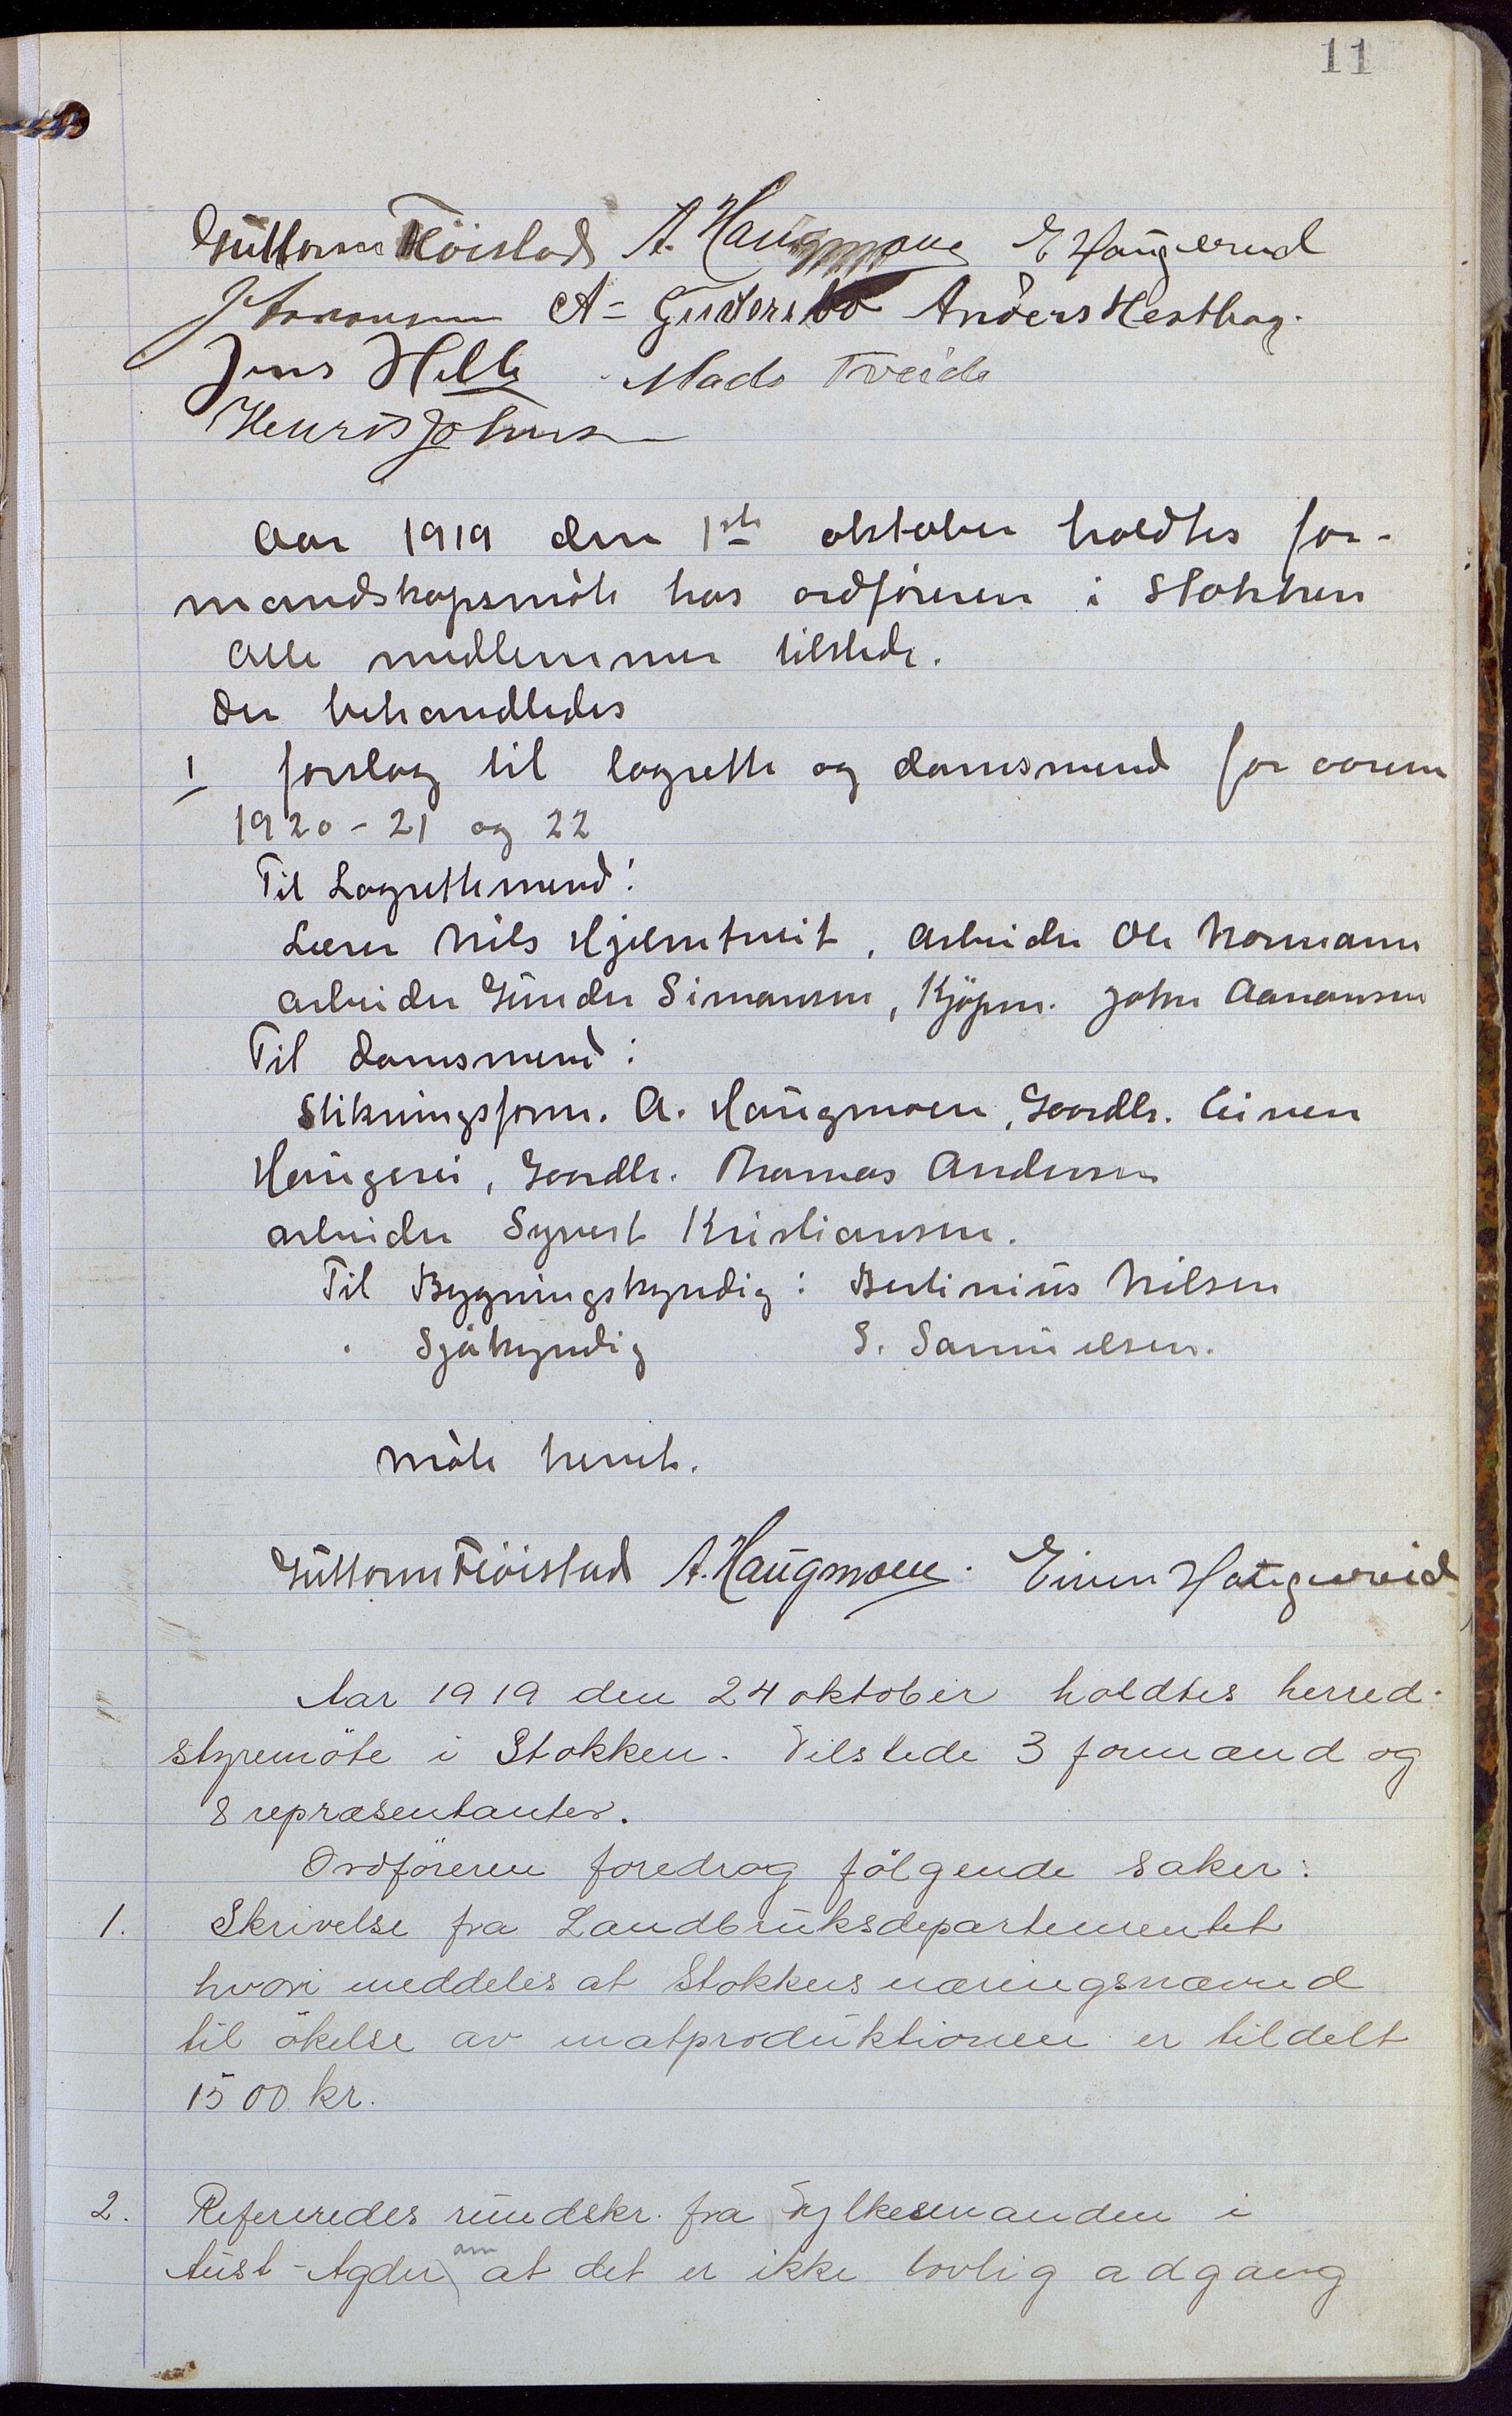 11
Guttorm Fløistad A. Haugmoen E Haugereid
J Aanonsen A. Gundersbø Anders Hesthag.
Jens Helle Mads Tveide
Henrik Johnsen
Aar 1919 den 1ste oktober holdtes for-
mandskapsmöte hos ordföreren i Stokken
Alle medlemmer tilstede.
Der behandledes
1 forslag til lagrette og domsmend for aarene
1920 - 21 og 22
Til Lagrettemend:
Lærer Nils Hjelmtveit, arbeider Ole Normann
arbeider Gunder Simonsen, Kjöpm. John Aanonsen
Til domsmend:
Stikningsform. A. Haugmoen, Gaardbr. Einar
Haugerei, Gaardbr. Thomas Andersen
arbeider Syvert Kristiansen.
Til Bygningskyndig: Bertinius Nilsen
" Sjökyndig S. Samuelsen.
Möte hevet.
Guttorm Fløistad A. Haugmoen. Einar Haugereid
Aar 1919 den 24 oktober holdtes herred-
styremöte i Stokken. Tilstede 3 formænd og
8 repræsentanter.
Ordföreren foredrog fölgende saker:
1. Skrivelse fra Landbruksdepartementet
hvori meddeles at Stokkens næringsnævnd
til ökelse av matproduktionen er tildelt
1500 kr.
2. Refereredes rundskr. fra Fylkesmanden i
Aust-Agder om at det er ikke lovlig adgang